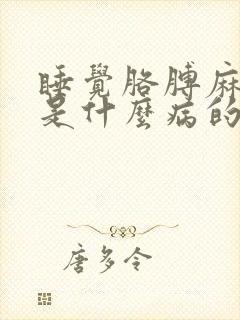 睡覺胳膊麻
是什麼病的
唐多令